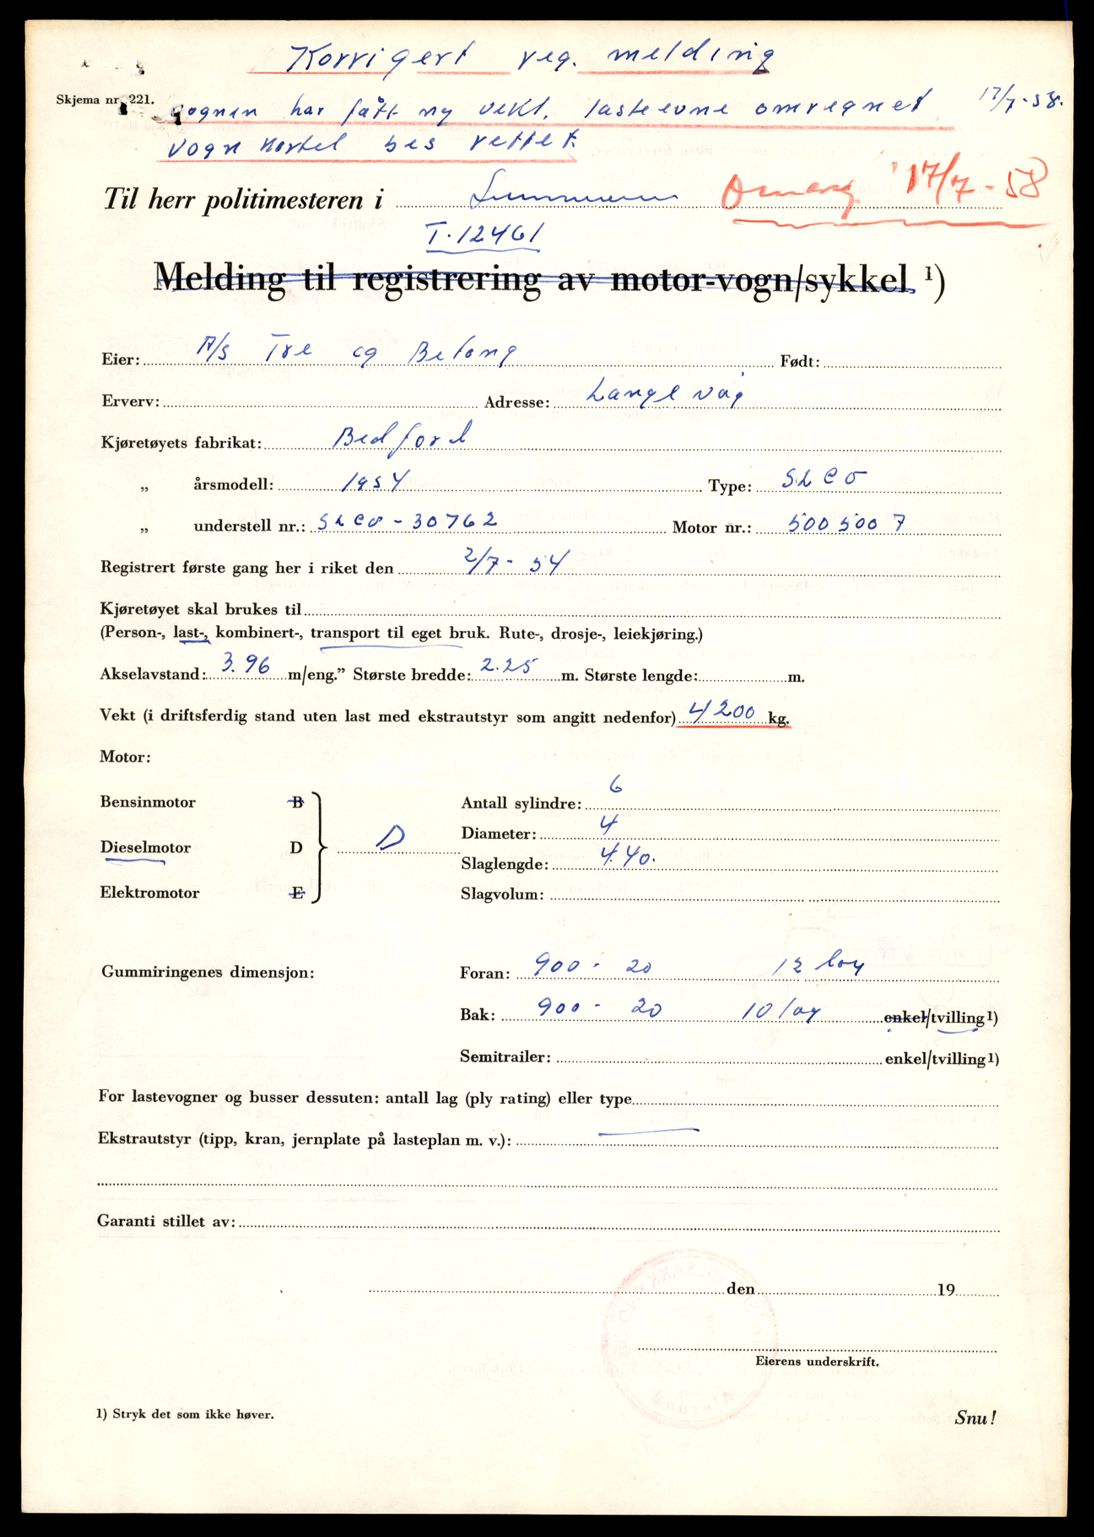 Korrigert reg. melding
Skjema nr. 221.
Vognen har fått ny vekt. lasteevne omregnet 17/7-58.
Vogn kortet bes rettet.
Til herr politimesteren i Sunnmøre
17/7-58
T-12461
Melding til registrering av motor-vogn/sykkel ¹)
Eier: A/s Tre og Betong Født:
Erverv: Adresse: Langevåg
Kjøretøyets fabrikat: Bedford
„ årsmodell: 1954 Type: SLCO
„ understell nr.: SLCO-30762 Motor nr.: 5005007
Registrert første gang her i riket den 2/7-54
Kjøretøyet skal brukes til
(Person-, last-, kombinert-, transport til eget bruk. Rute-, drosje-, leiekjøring.)
Akselavstand: 3.96 m/eng.” Største bredde: 2.25 m. Største lengde: m.
Vekt (i driftsferdig stand uten last med ekstrautstyr som angitt nedenfor) 4200 kg.
Motor:
Bensinmotor B
Dieselmotor D D
Elektromotor E
Antall sylindre: 6
Diameter: 4
Slaglengde: 4.40.
Slagvolum:
Gummiringenes dimensjon: Foran: 900-20 12 lag
Bak: 900-20 10 lag enkel/tvilling ¹)
Semitrailer: enkel/tvilling ¹)
For lastevogner og busser dessuten: antall lag (ply rating) eller type
Ekstrautstyr (tipp, kran, jernplate på lasteplan m. v.):
Garanti stillet av:
den 19
Eierens underskrift.
1) Stryk det som ikke høver.
Snu!